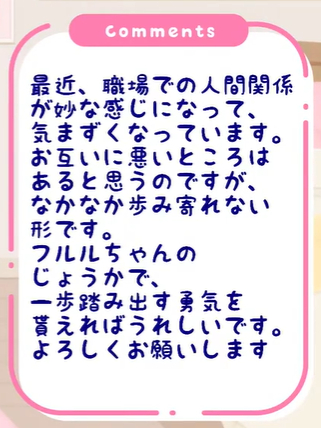 Comments
最近、職場での人間関係
が妙な感じになって、
気まずくなっています。
お互いに悪いところは
あると思うのですが、
なかなか歩み寄れない
形です。
フルルちゃんの
じょうかで、
一歩踏み出す勇気を
貰えればうれしいです。
よろしくお願いします